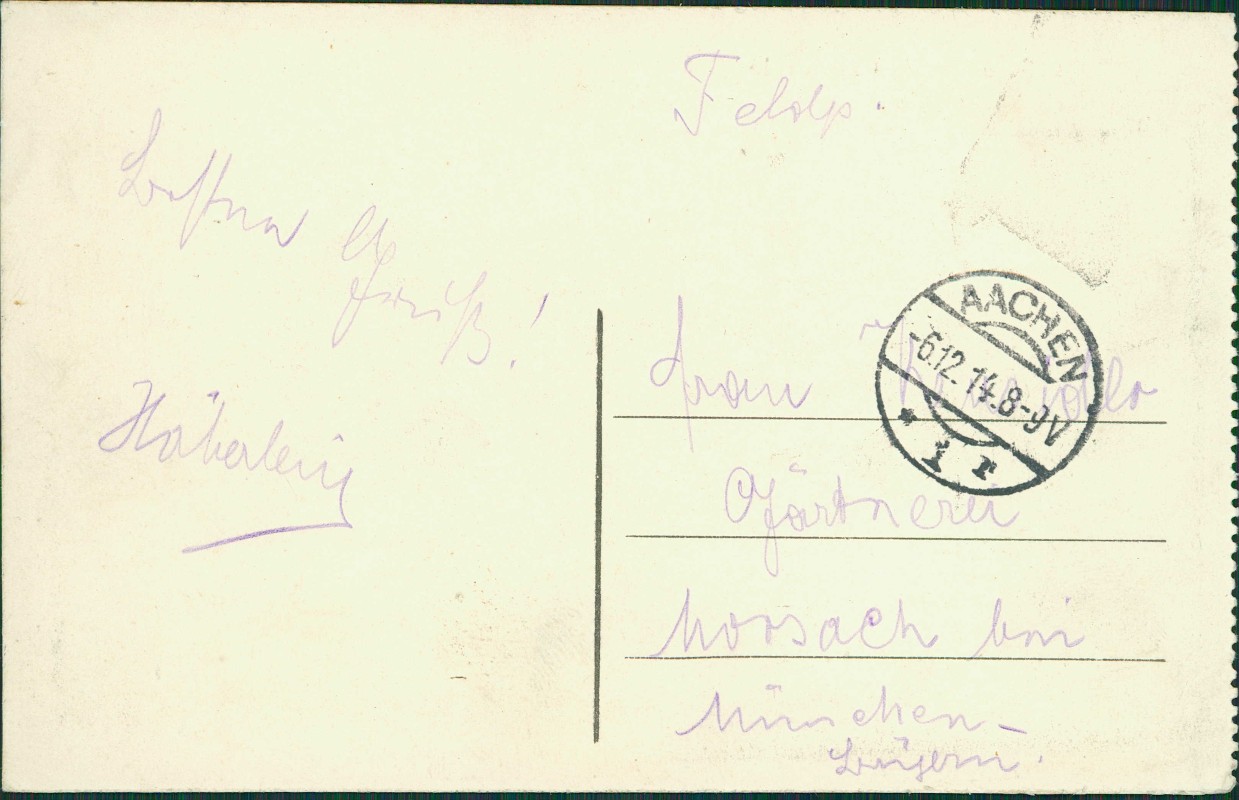 Feldp.
Besten
Gruß!
Häberlein
AACHEN
-6.12.14.8-9V
* 1 r
Frau
Gärtnerei
Moosach bei
München-
Bayern.